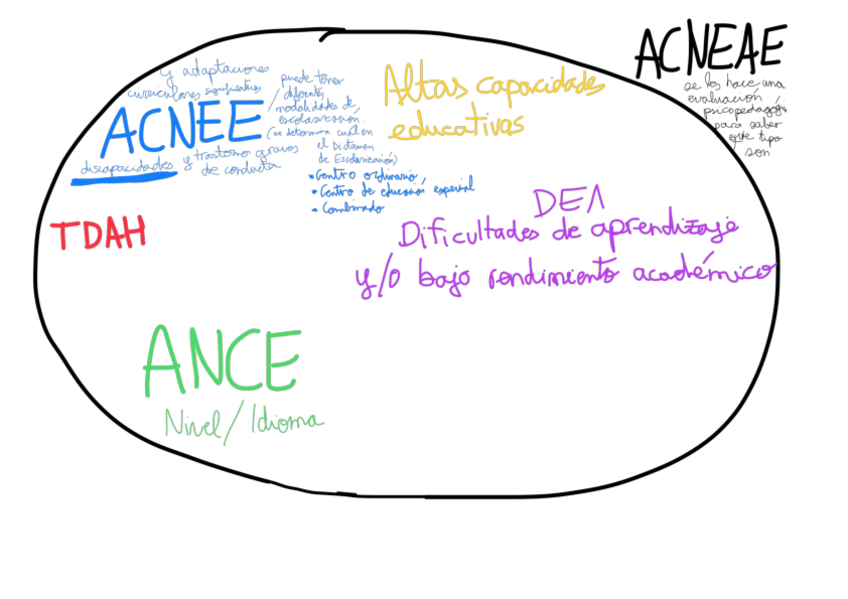 ACNEAE
se les hace una
evaluación
psicopedagógica
para saber
que tipo
son
y adaptaciones
curriculares significativas
ACNEE
discapacidades y trastornos graves
de conducta
puede tener
diferentes
modalidades de
escolarización
(se determina cual en
el Dictamen
de Escolarización)
• Centro ordinario
• Centro de educación especial
• Combinado
Altas capacidades
educativas
TDAH
DEA
Dificultades de aprendizaje
y/o bajo rendimiento académico
ANCE
Nivel/Idioma